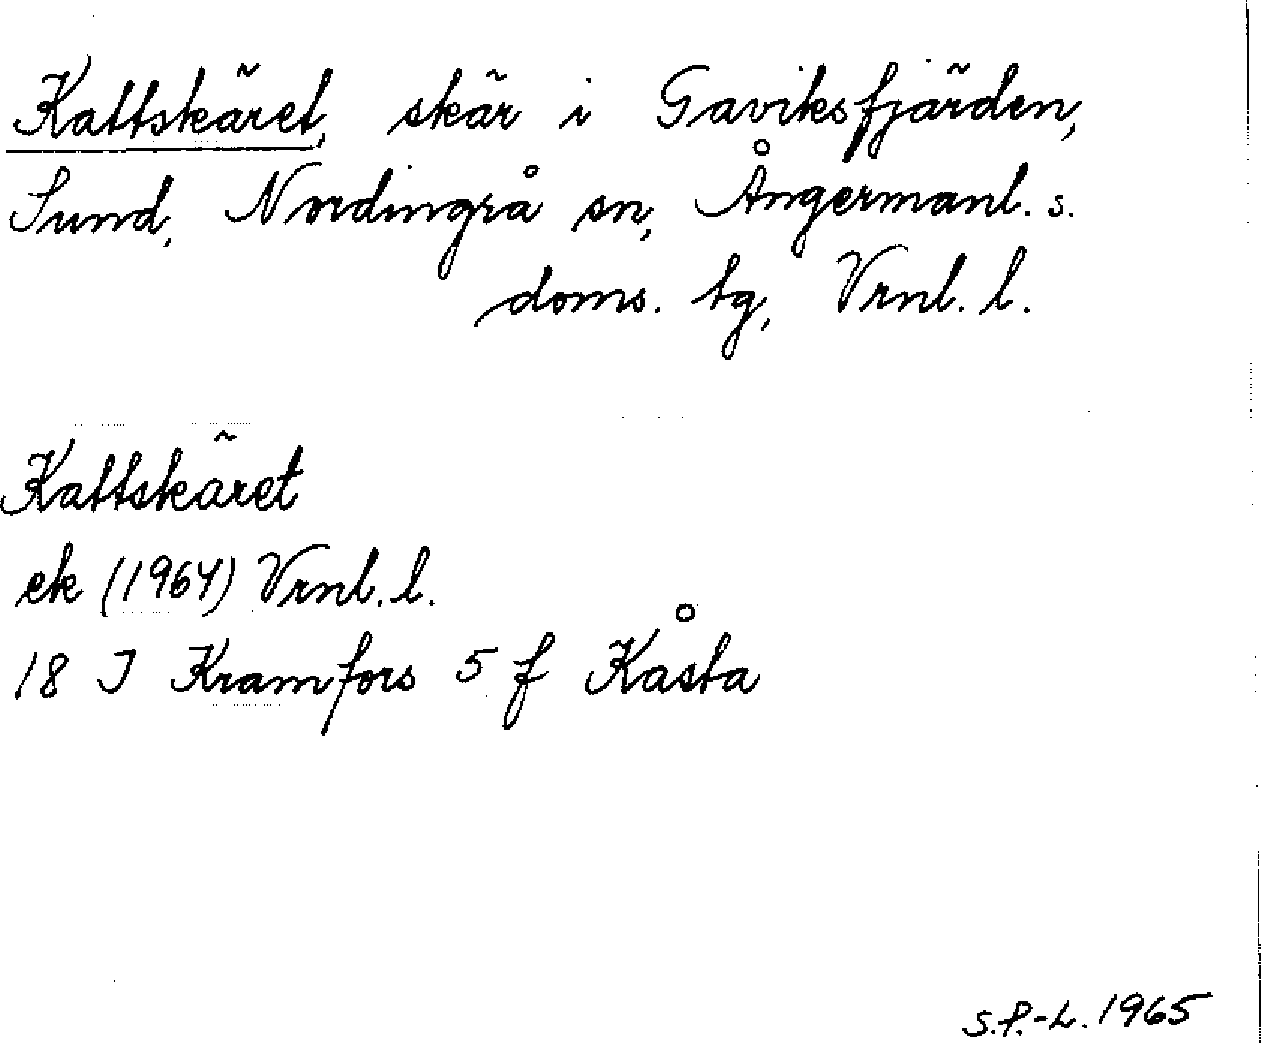 Kattskäret, skär i Gaviksfjärden,
Sund, Nordingrå sn, Ångermanl. s.
doms. tg, Vrnl. l.
Kattskäret
ek (1964) Vrnl. l.
18 J Kramfors 5 f Kåsta
S.P.-L. 1965